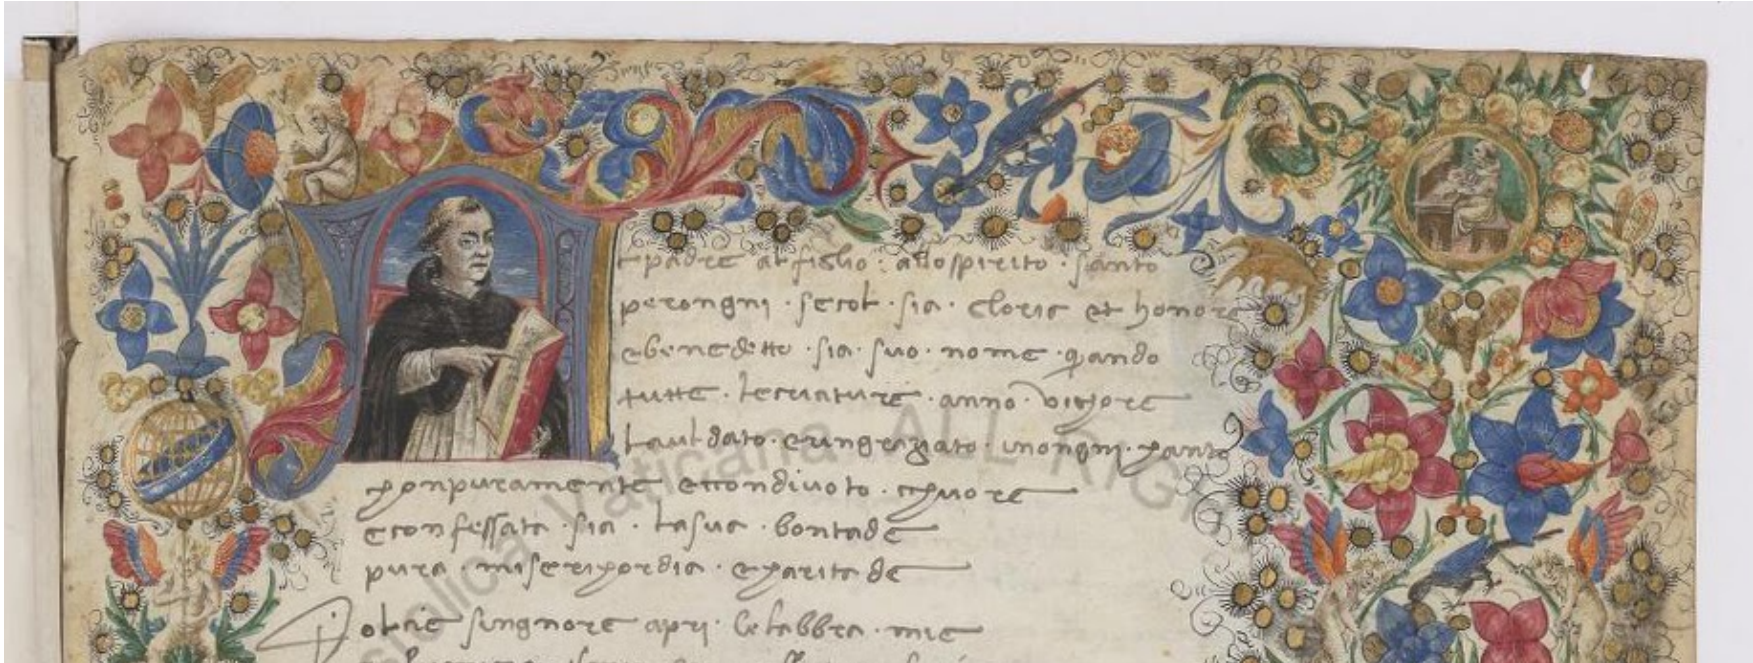 l padre al figlio : allo spirito · santo
perongni · secol · sia · gloria et honore
ebenedetto · sia · suo · nome · quando
tutte · lecriature · anno · vighore
lauldato · eringraziato · inongni · xanto
xonpuramente econdivoto · chuore
econfessata · sia · lasua · bontade
pura · miserixordia · exaritade
singnore apri · lelabbra · mie
Vaticana ALL RIGH